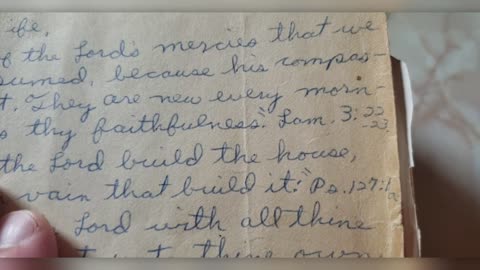 ife,
f the Lord's mercies that we
sumed, because his compas-
t. They are new every morn-
s thy faithfulness." Lam. 3:22
-23
the Lord build the house,
vain that build it." Ps. 127:1a
Lord with all thine
t to thine own